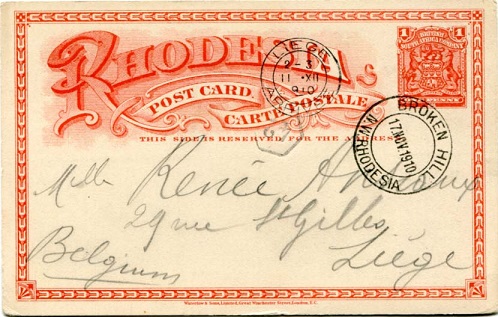 RHODESIA
POST CARD.
CARTE POSTALE
THIS SIDE IS RESERVED FOR THE ADDRESS
1 1
BRITISH
SOUTH AFRICA COMPANY
PENNY
11 XII
BROKEN HILL
17 NOV 1910
N.W. RHODESIA
Mlle Renée
29 rue St Gilles
Liége
Belgium
Waterlow & Sons, Limited, Great Winchester Street, London, E.C.